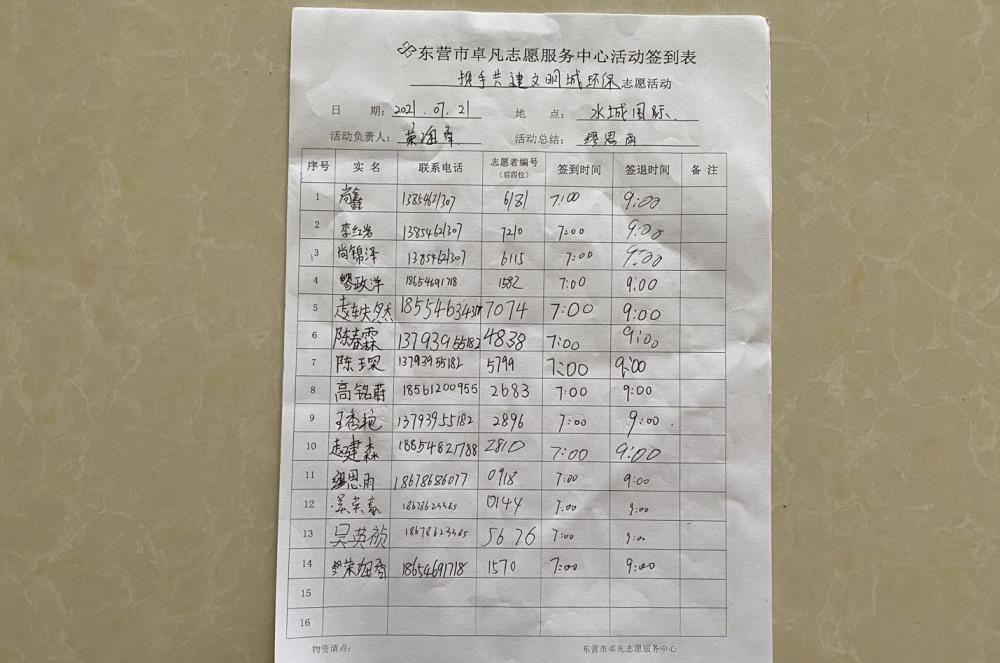 东营市卓凡志愿服务中心活动签到表
携手共建文明城环保志愿活动
日 期: 2021.07.21 地 点: 水城国际
活动负责人: 活动总结: 缪思雨
序号 实名 联系电话 志愿者编号(后四位) 签到时间 签退时间 备注
1 尚鑫 13854621307 6181 7:00 9:00
2 李红岩 13854621307 7210 7:00 9:00
3 尚锦泽 13854621307 6115 7:00 9:00
4 缪政洋 18654691718 1582 7:00 9:00
5 7074 7:00 9:00
6 陈春霖 13793955182 4838 7:00 9:00
7 陈玉琛 13793955182 5799 7:00 9:00
8 高铭蔚 18561200955 2683 7:00 9:00
9 王秀艳 13793955182 2896 7:00 9:00
10 赵建森 18854621788 2810 7:00 9:00
11 缪思雨 18678686077 0918 7:00 9:00
12 18678623365 0144 7:00 9:00
13 吴英祯 18678623365 5676 7:00 9:00
14 18654691718 1570 7:00 9:00
15
16
物资清点: 东营市卓凡志愿服务中心